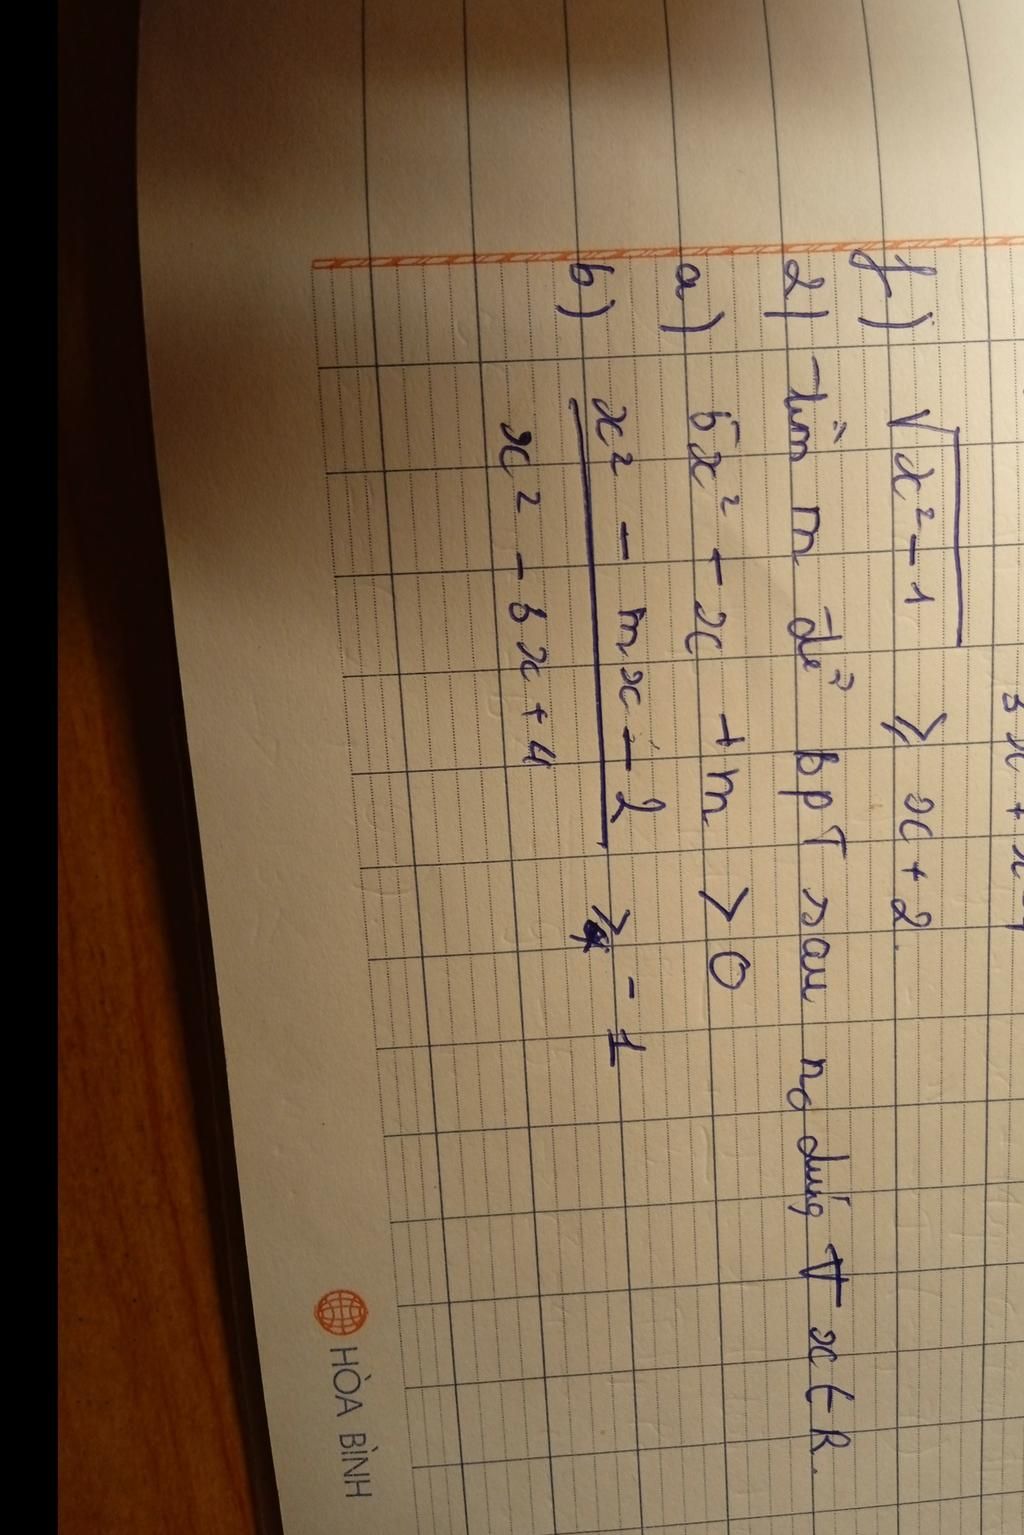 f) √x² - 1 ≥ x + 2.
2) Tìm m để BPT sau no đúng ∀ x ∈ R.
a) 5x² + x + m > 0
b) x² - mx - 2 ≥ - 1
x² - 6x + 4
HÒA BÌNH